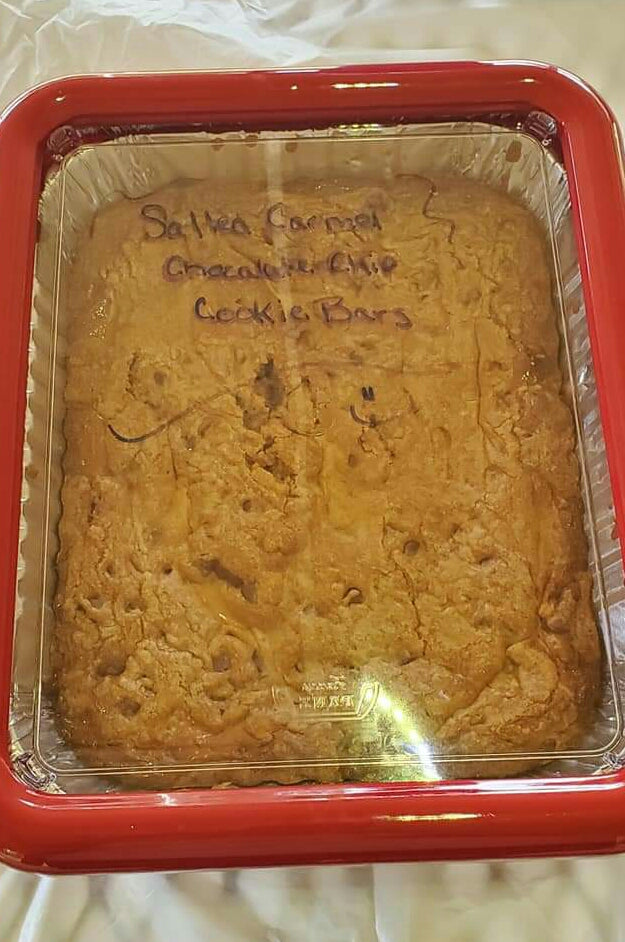 Salted Carmel
Chocolate Chip
Cookie Bars